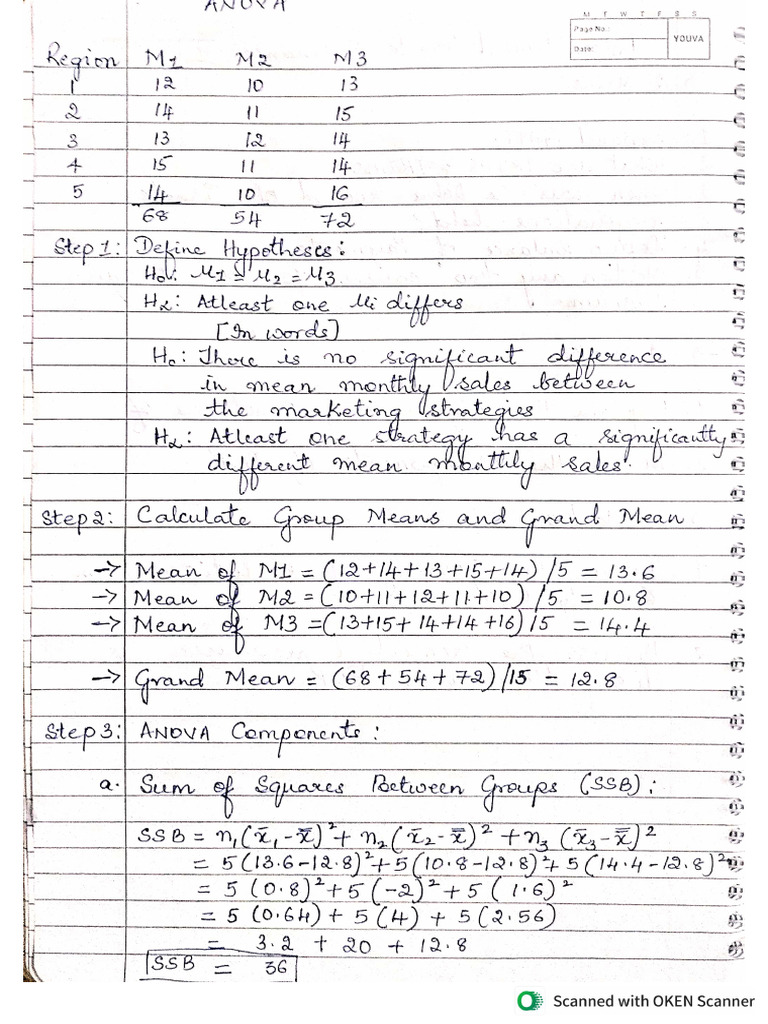 ANOVA
M T W T F S S
Page No.:
YOUVA
Date:
Region M1 M2 M3
1 12 10 13
2 14 11 15
3 13 12 14
4 15 11 14
5 14 10 16
68 54 72
Step 1: Define Hypotheses:
H₀: μ1 = μ2 = μ3
H₂: Atleast one μi differs
[In words]
H₀: There is no significant difference
in mean monthly sales between
the marketing strategies
H₂: Atleast one strategy has a significantly
different mean monthly sales.
Step 2: Calculate Group Means and Grand Mean
→ Mean of M1 = (12+14+13+15+14) /5 = 13.6
→ Mean of M2 = (10+11+12+11+10) /5 = 10.8
→ Mean of M3 = (13+15+14+14+16) /5 = 14.4
→ Grand Mean = (68+54+72) /15 = 12.8
Step 3: ANOVA Components:
a. Sum of Squares Between Groups (SSB):
SSB = n₁(x̄₁-x̿)² + n₂(x̄₂-x̿)² + n₃(x̄₃-x̿)²
= 5(13.6-12.8)²+5(10.8-12.8)²+5(14.4-12.8)²
= 5(0.8)²+5(-2)²+5(1.6)²
= 5(0.64) + 5(4) + 5(2.56)
= 3.2 + 20 + 12.8
SSB = 36
Scanned with OKEN Scanner